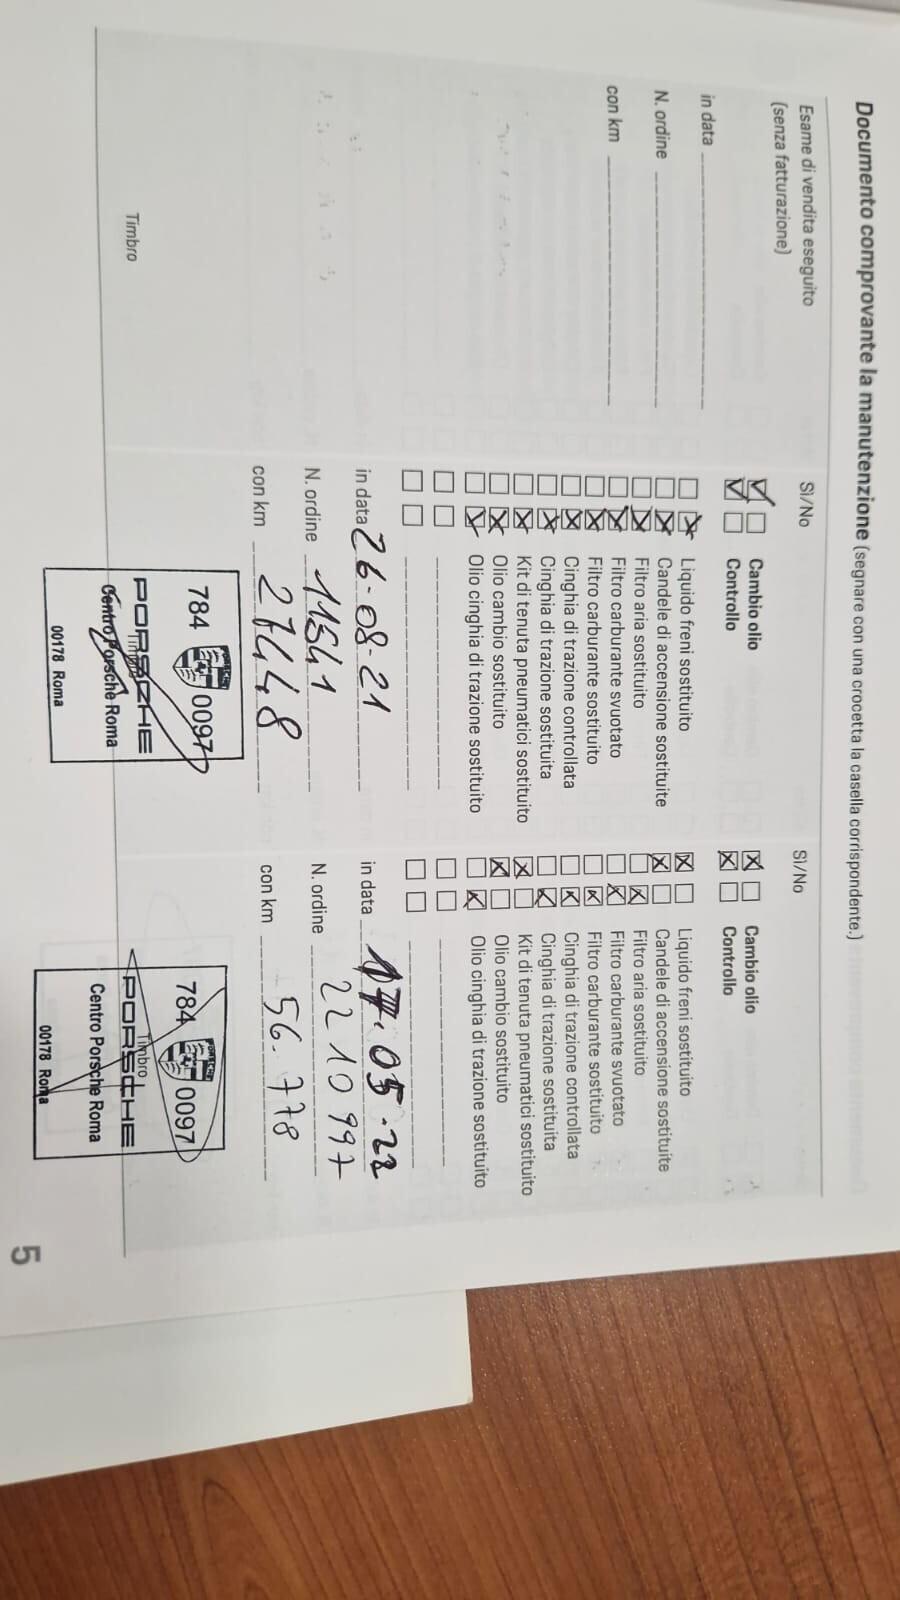 Documento comprovante la manutenzione (segnare con una crocetta la casella corrispondente.)
Esame di vendita eseguito
(senza fatturazione)
in data
N. ordine
con km
Timbro
Sì/No
Cambio olio
Controllo
Liquido freni sostituito
Candele di accensione sostituite
Filtro aria sostituito
Filtro carburante svuotato
Filtro carburante sostituito
Cinghia di trazione controllata
Cinghia di trazione sostituita
Kit di tenuta pneumatici sostituito
Olio cambio sostituito
Olio cinghia di trazione sostituito
in data 26-08-21
N. ordine 11541
con km 27448
784 0097
Timbro
PORSCHE
Centro Porsche Roma
00178 Roma
Sì/No
Cambio olio
Controllo
Liquido freni sostituito
Candele di accensione sostituite
Filtro aria sostituito
Filtro carburante svuotato
Filtro carburante sostituito
Cinghia di trazione controllata
Cinghia di trazione sostituita
Kit di tenuta pneumatici sostituito
Olio cambio sostituito
Olio cinghia di trazione sostituito
in data 17.05.22
N. ordine 2210997
con km 56.778
784 0097
Timbro
PORSCHE
Centro Porsche Roma
00178 Roma
5